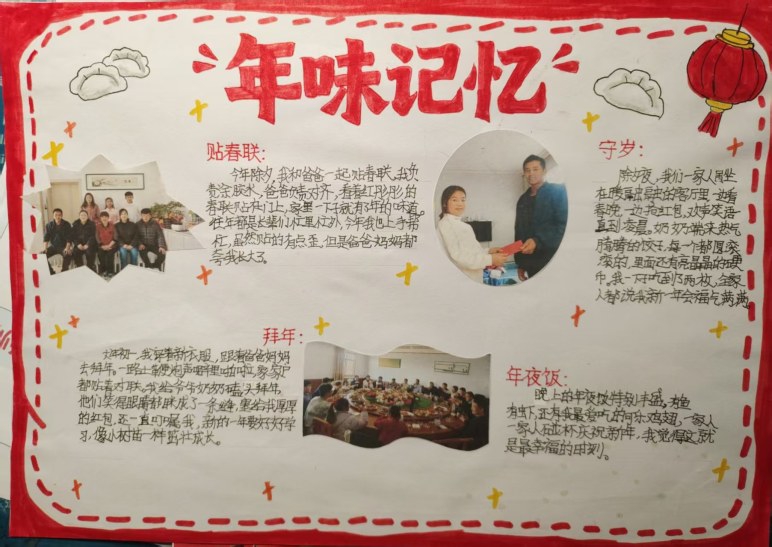 年味记忆
贴春联:
今年除夕,我和爸爸一起贴春联。我负
责涂胶水,爸爸负责对齐,看着红彤彤的
春联贴在门上,家里一下就有了年的味道。
往年都是长辈们忙里忙外,今年我也上手帮
忙,虽然贴的有点歪,但是爸爸妈妈都
夸我长大了。
守岁:
除夕夜,我们一家人围坐
在暖洋洋的客厅里一边看
春晚,一边抢红包,欢声笑语
直到凌晨。奶奶端来热气
腾腾的饺子,每一个都圆滚
滚的,里面还有亮晶晶的硬
币。我一下吃到了两枚,全家
人都说我新一年会福气满满。
拜年:
大年初一,我穿着新衣服,跟着爸爸妈妈
去拜年。一路上鞭炮声噼里啪啦,家家户户
都贴着对联。我给爷爷奶奶磕头拜年,
他们笑得眼睛都眯成了一条缝,塞给我厚厚
的红包,还一直叮嘱我,新的一年要好好学
习,像小树苗一样茁壮成长。
年夜饭:
晚上的年夜饭特别丰盛。有鱼
有虾,还有我最爱吃的可乐鸡翅,一家人
一家人碰杯庆祝新年,我觉得这就
是最幸福的时刻。